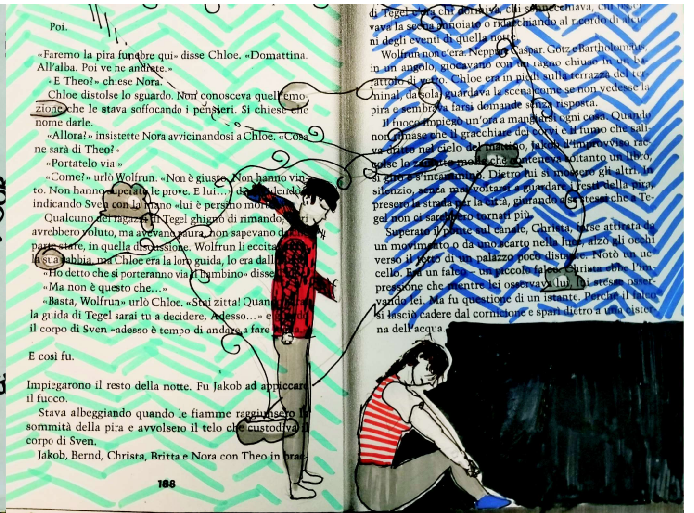 Poi.
«Faremo la pira funebre qui» disse Chloe. «Domattina.
All'alba. Poi ve ne andrete.»
«E Theo?» chiese Nora.
Chloe distolse lo sguardo. Non conosceva quell'emo-
zione che le stava soffocando i pensieri. Si chiese che
nome darle.
«Allora?» insistette Nora avvicinandosi a Chloe. «Cosa
ne sarà di Theo?»
«Portatelo via.»
«Come?» urlò Wolfrun. «Non è giusto. Non hanno vin-
to. Non hanno le prove. E lui…
indicando Sven con la mano «lui è persino
Qualcuno dei ragazzi di Tegel ghignò di rimando,
avrebbero voluto, ma avevano paura, non sapevano da
parte stare, in quella discussione. Wolfrun li eccita
la sta rabbia, ma Chloe era la loro guida, lo era dall'
«Ho detto che si porteranno via il bambino» disse
«Ma non è questo che…»
«Basta, Wolfrun» urlò Chloe. «Stai zitta! Quando
la guida di Tegel sarai tu a decidere. Adesso…» e
il corpo di Sven «adesso è tempo di andare a fare
E così fu.
Impiegarono il resto della notte. Fu Jakob ad appiccare
il fuoco.
Stava albeggiando quando le fiamme raggiunsero la
sommità della pira e avvolsero il telo che custodiva il
corpo di Sven.
Jakob, Bernd, Christa, Britta e Nora con Theo in brac-
188
di Tegel c'era chi dormiva, chi sonnecchiava, chi
vava la scena annoiato o ridacchiando al ricordo di alcu-
ni degli eventi di quella notte.
Wolfrun non c'era. Neppure Kaspar. Götz e Bartholomäus,
in un angolo, giocavano con un ragno chiuso in un ba-
rattolo di vetro. Chloe era in piedi sulla terrazza del ter-
minal, da sola, guardava la scena come se non vedesse la
pira e sembrava farsi domande senza risposta.
Il fuoco impiegò un'ora a mangiarsi ogni cosa. Quando
non rimase che il gracchiare dei corvi e il fumo che sali-
va dritto nel cielo del mattino, Jakob d'improvviso rac-
colse lo zainetto che conteneva soltanto un libro,
si girò e s'incamminò. Dietro lui si mossero gli altri. In
silenzio, senza mai voltarsi a guardare i resti della pira,
presero la strada per la città, giurando a sé stessi che a Te-
gel non ci sarebbero tornati più.
Superato il ponte sul canale, Christa, forse attirata da
un movimento o da uno scarto nella luce, alzò gli occhi
verso il tetto di un palazzo poco distante. Notò un uc-
cello. Era un falco, un piccolo falco. Christa ebbe l'im-
pressione che mentre lei osservava lui, lui stesse osser-
vando lei. Ma fu questione di un istante. Perché il falco
si lasciò cadere dal cornicione e sparì dietro a una cister-
na dell'acqua.